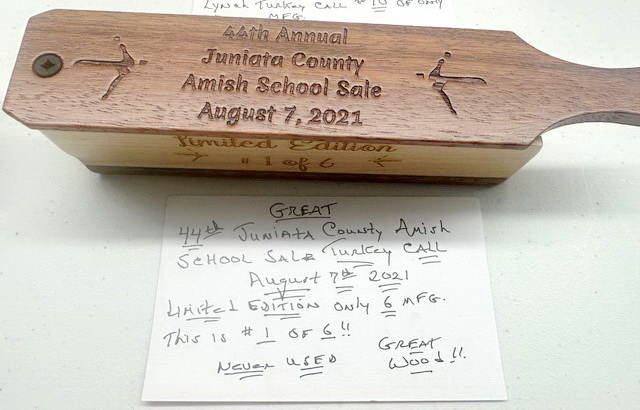 Lynch Turkey Call # 10 of only
MFG.
44th Annual
Juniata County
Amish School Sale
August 7, 2021
Limited Edition
# 1 of 6
GREAT
44th Juniata County Amish
School Sale Turkey Call
August 7th 2021
Limited Edition only 6 MFG.
This is # 1 of 6!!
Never Used
GREAT
Wood!!